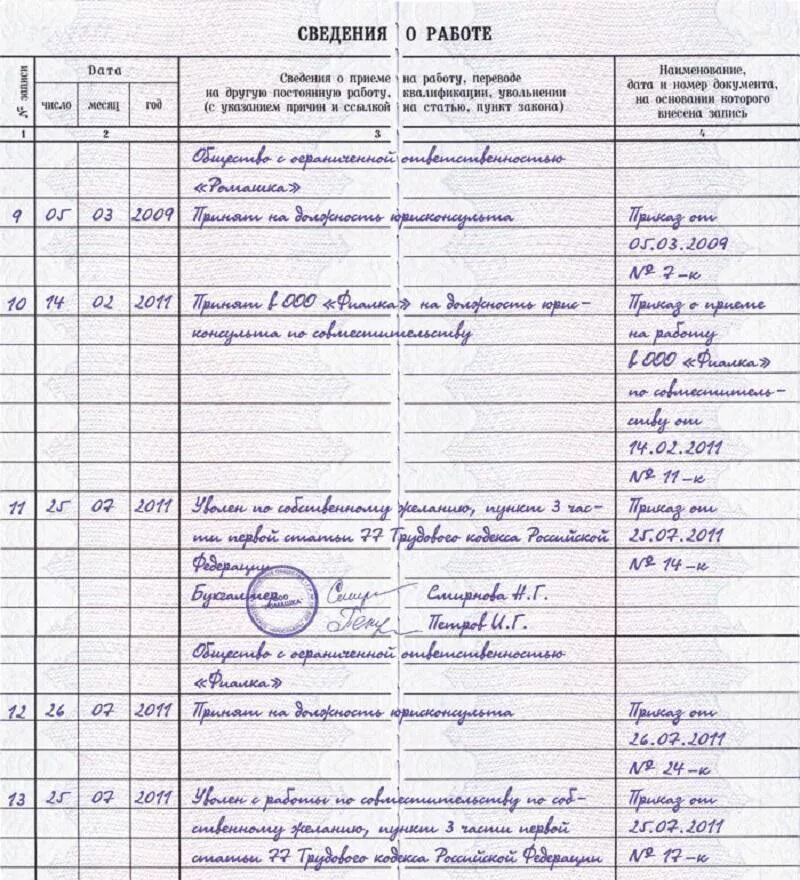 СВЕДЕНИЯ О РАБОТЕ
№ записи
Дата
Сведения о приеме на работу, переводе
на другую постоянную работу, квалификации, увольнении
(с указанием причин и ссылкой на статью, пункт закона)
Наименование,
дата и номер документа,
на основании которого
внесена запись
число месяц год
1 2 3 4
Общество с ограниченной ответственностью
«Ромашка»
9 05 03 2009 Принят на должность юрисконсульта Приказ от
05.03.2009
№ 7-к
10 14 02 2011 Принят в ООО «Фиалка» на должность юрис- Приказ о приеме
консульта по совместительству на работу
в ООО «Фиалка»
по совместитель-
ству от
14.02.2011
№ 11-к
11 25 07 2011 Уволен по собственному желанию, пункт 3 час- Приказ от
ти первой статьи 77 Трудового кодекса Российской 25.07.2011
Федерации № 14-к
Бухгалтер Смирнова Н.Г.
Петров И.Г.
ООО
«Ромашка»
Общество с ограниченной ответственностью
«Фиалка»
12 26 07 2011 Принят на должность юрисконсульта Приказ от
26.07.2011
№ 24-к
13 25 07 2011 Уволен с работы по совместительству по соб- Приказ от
ственному желанию, пункт 3 части первой 25.07.2011
статьи 77 Трудового кодекса Российской Федерации № 17-к